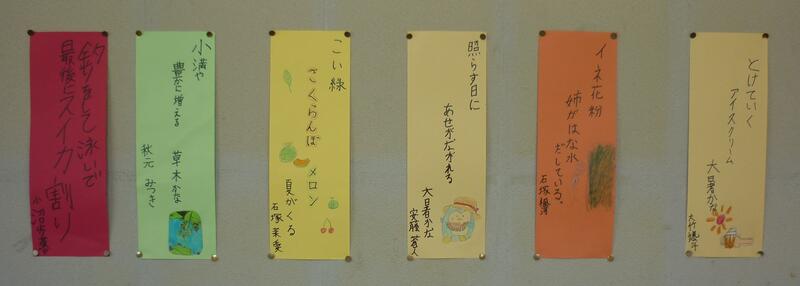 とけていく
アイスクリーム
大暑かな
イネ花粉
姉がはな水
だしている。
照らす日に
あせがながれる
大暑かな
安藤 蒼人
こい緑
さくらんぼ メロン
夏がくる
小満や
豊かに増える
草木かな
秋元 みつき
夕釣りをして泳いで
最後にスイカ割り